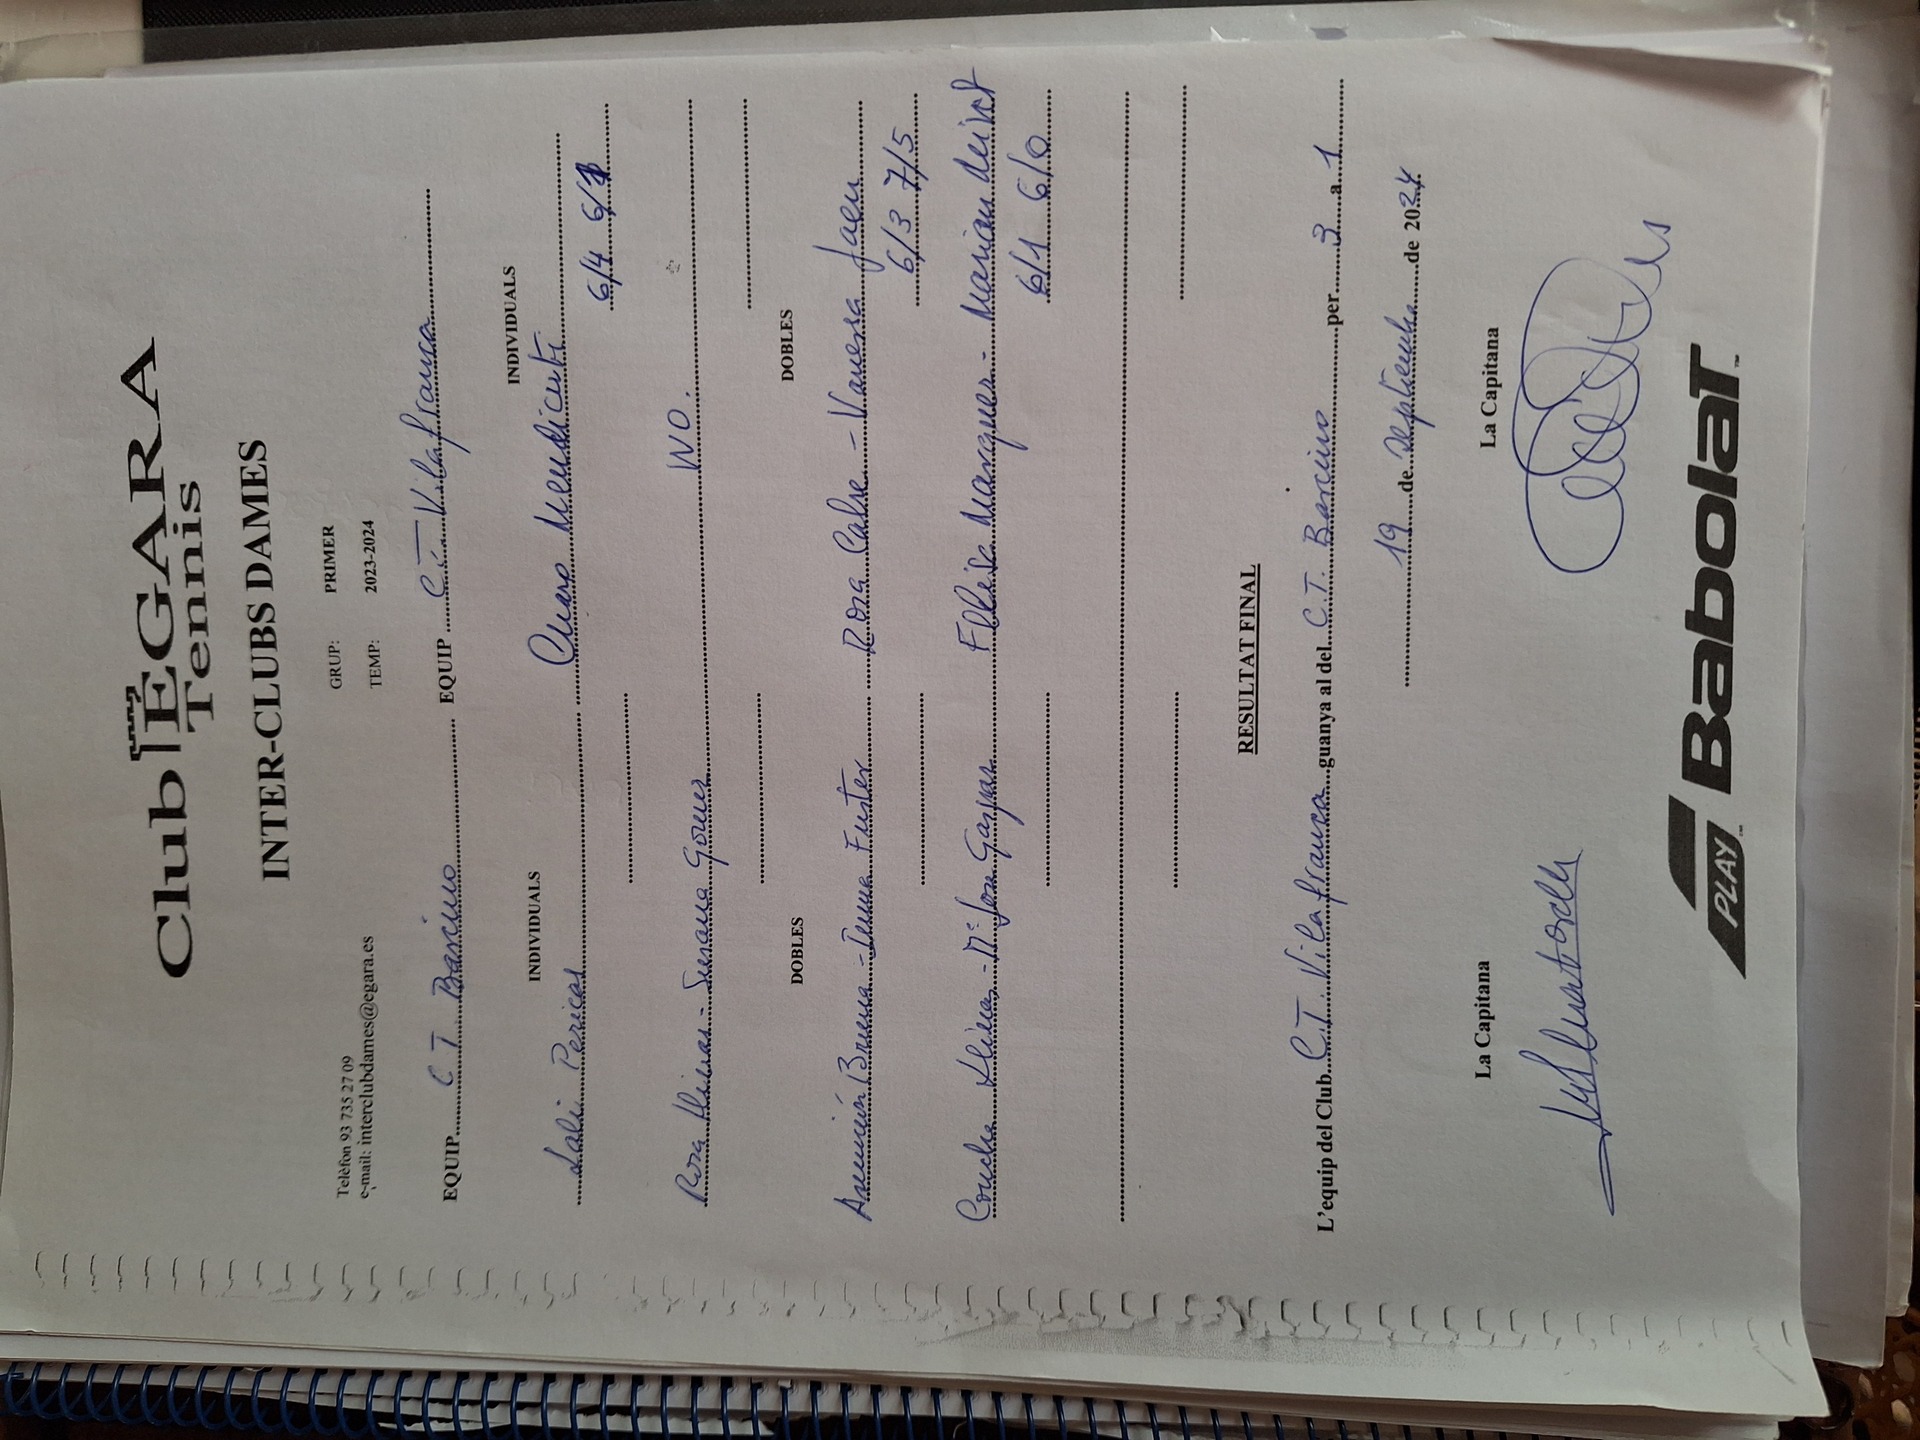 Club EGARA
Tennis
INTER-CLUBS DAMES
Telèfon 93 735 27 09
e-mail: interclubdames@egara.es
GRUP: PRIMER
TEMP: 2023-2024
EQUIP C T Barcino EQUIP C.T. Vilafranca
INDIVIDUALS INDIVIDUALS
Lali Pericas Charo Mendicuti
6/4 6/1
Rosa Llinas - Susana Gomez WO.
DOBLES DOBLES
Asunción Bruna - Inma Fuster Rosa Calve - Vanessa Jaen
6/3 7/5
Concha Llinas - Mª Jose Gaspar Elisa Marquez - Marian
6/1 6/0
RESULTAT FINAL
L'equip del Club C.T. Vilafranca guanya al del C.T. Barcino per 3 a 1
19 de Septiembre de 2024
La Capitana La Capitana
PLAY BABOLAT